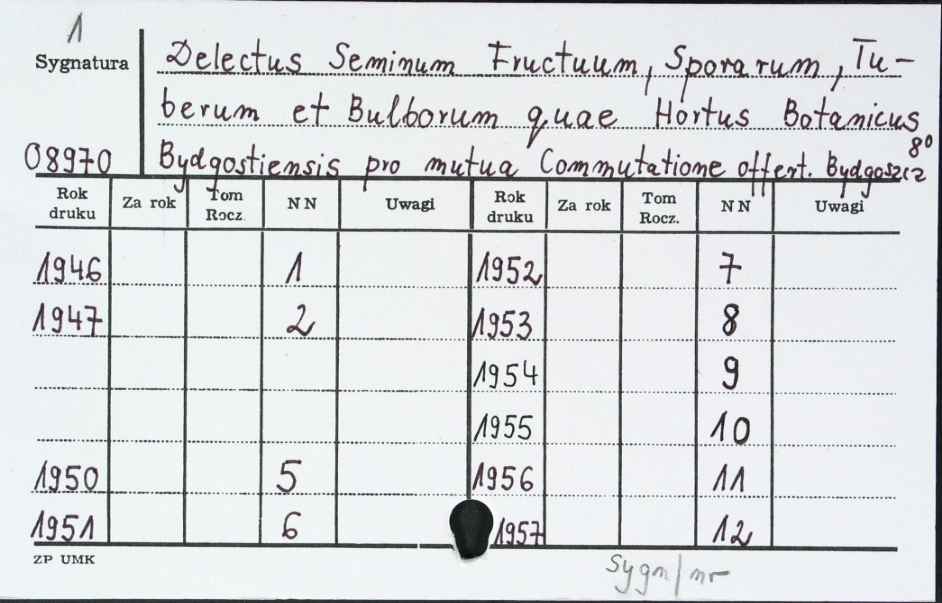 1
Sygnatura
08970
Delectus Seminum Fructuum, Sporarum, Tu-
berum et Bulborum quae Hortus Botanicus
8°
Bydgostiensis pro mutua Commutatione offert. Bydgoszcz
Rok druku Za rok Tom Rocz. NN Uwagi Rok druku Za rok Tom Rocz. NN Uwagi
1946 1 1952 7
1947 2 1953 8
1954 9
1955 10
1950 5 1956 11
1951 6 1957 12
ZP UMK
Sygn/nr